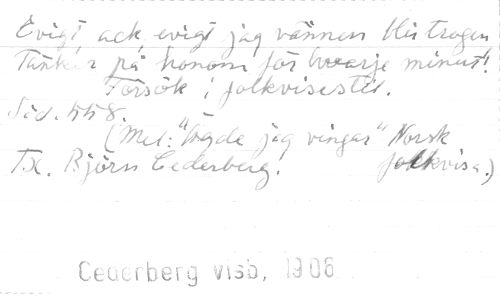 Evigt, ack, evigt jag vännen blir trogen
Tänker på honom för hvarje minut!
Försök i folkvisestil.
Sid. 558.
(Mel: "Ägde jag vingar" Norsk
Tx. Björn Cederberg. folkvisa.)
Cederberg visb, 1906